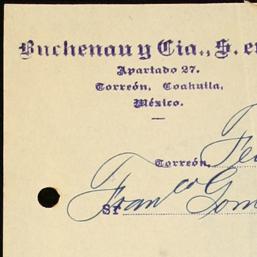 Buchenau y Cia., S. en
Apartado 27.
Torreón, Coahuila,
México.
Torreón, Fe
Sr Fran co Gom